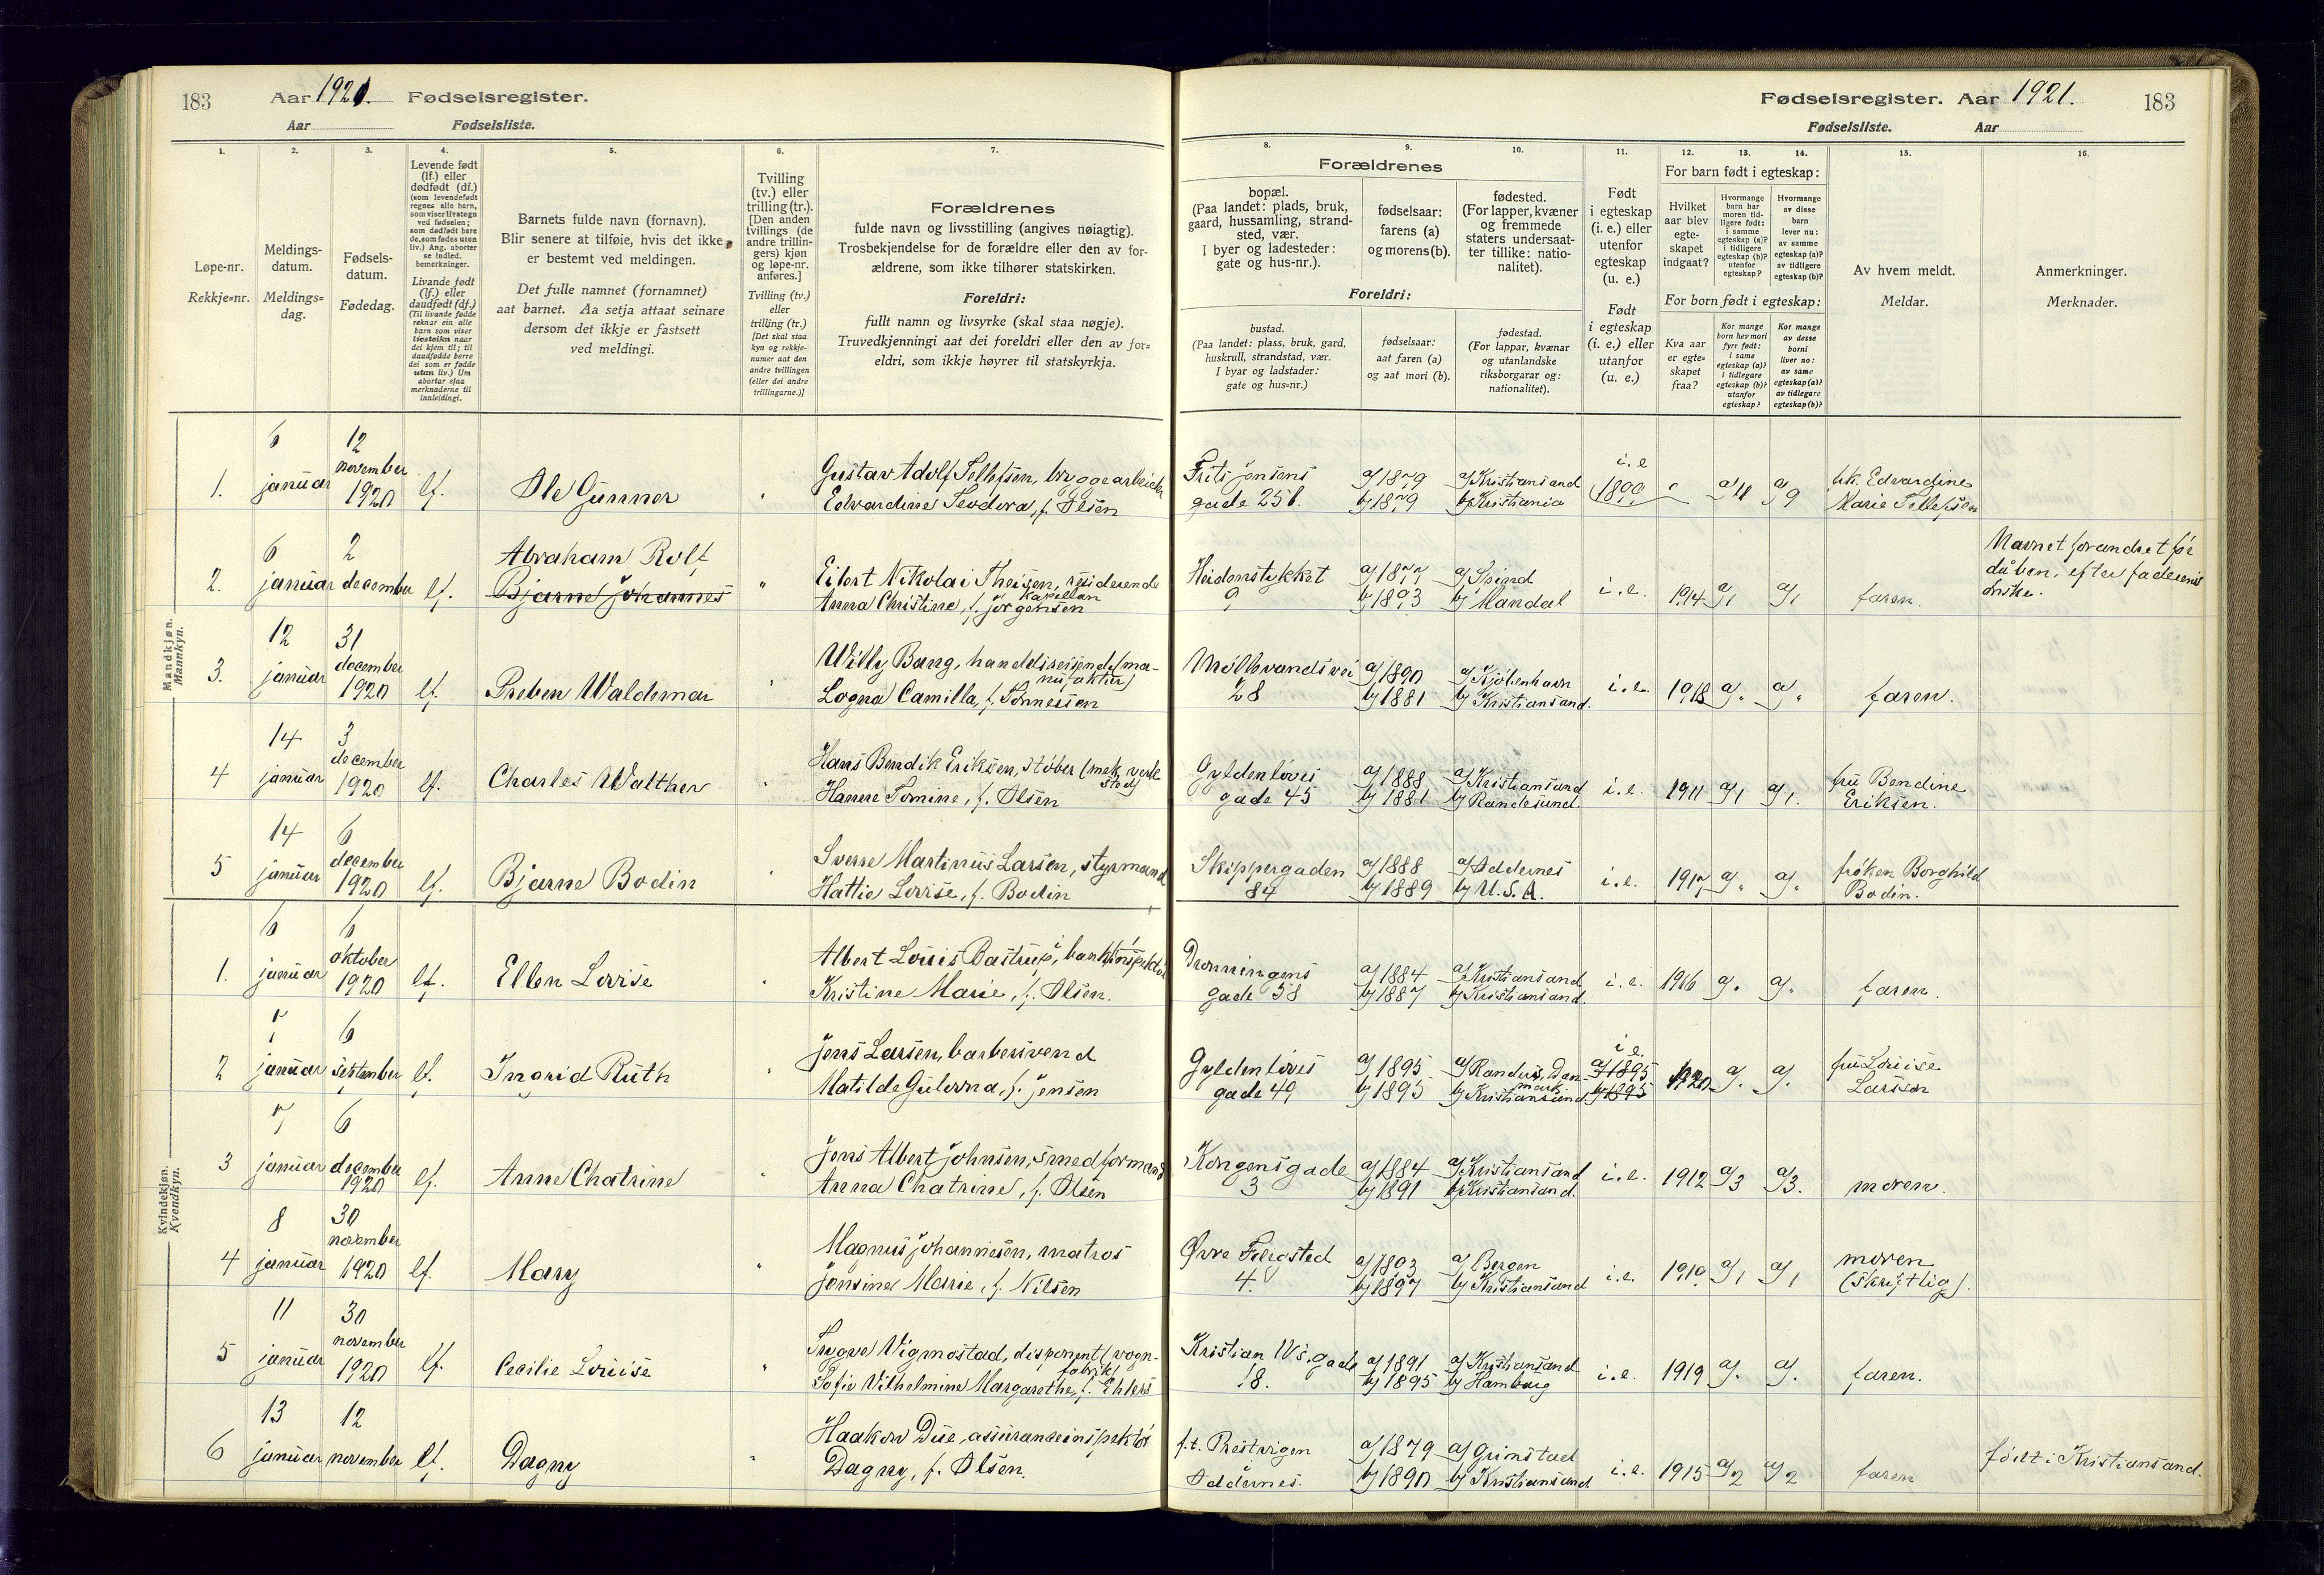 183 Aar 1921. Fødselsregister.
Aar Fødselsliste.
Fødselsregister. Aar 1921. 183
Fødselsliste. Aar
1. 2. 3. 4. 5. 6. 7.
Løpe-nr.
Rekkje-nr.
Meldings-
datum.
Meldings-
dag.
Fødsels-
datum.
Fødedag.
Levende født
(lf.) eller
dødfødt (df.)
(som levendefødt
regnes alle barn,
som viser livstegn
ved fødselen;
som dødfødt bare
de, som fødes uten
liv.) Ang. aborter
se indled.
bemerkninger.
Livande født
(lf.) eller
daudfødt (df.)
(Til livande fødde
reknar ein alle
barn som viser
livsteikn naar
dei kjem til; til
daudfødde berre
dei som er fødde
utan liv.) Um
abortar sjaa
merknaderne til
innleidingi.
Barnets fulde navn (fornavn).
Blir senere at tilføie, hvis det ikke
er bestemt ved meldingen.
Det fulle namnet (fornamnet)
aat barnet. Aa setja attaat seinare
dersom det ikkje er fastsett
ved meldingi.
Tvilling
(tv.) eller
trilling (tr.).
[Den anden
tvillings (de
andre trillin-
gers) kjøn
og løpe-nr.
anføres.]
Tvilling (tv.)
eller
trilling (tr.)
[Det skal staa
kyn og rekkje-
numer aat den
andre tvillingen
(eller dei andre
trillingarne.)]
Forældrenes
fulde navn og livsstilling (angives nøiagtig).
Trosbekjendelse for de forældre eller den av for-
ældrene, som ikke tilhører statskirken.
Foreldri:
fullt namn og livsyrke (skal staa nøgje).
Truvedkjenningi aat dei foreldri eller den av for-
eldri, som ikkje høyrer til statskyrkja.
8. 9. 10. 11. 12. 13. 14. 15. 16.
Forældrenes
bopæl.
(Paa landet: plads, bruk,
gaard, hussamling, strand-
sted, vær.
I byer og ladesteder:
gate og hus-nr.).
fødselsaar:
farens (a)
og morens (b).
fødested.
(For lapper, kvæner
og fremmede
staters undersaat-
ter tillike: natio-
nalitet).
Foreldri:
bustad.
(Paa landet: plass, bruk, gard,
huskrull, strandstad, vær.
I byar og ladstader:
gate og hus-nr.)
fødselsaar:
aat faren (a)
og aat mori (b).
fødestad.
(For lappar, kvænar
og utanlandske
riksborgarar og:
nationalitet).
Født
i egteskap
(i. e.) eller
utenfor
egteskap
(u. e.)
Født
i egteskap
(i. e.) eller
utanfor
(u. e.)
For barn født i egteskap:
Hvilket
aar blev
egte-
skapet
indgaat?
Hvormange
barn har
moren tid-
ligere født:
i samme
egteskap (a)?
i tidligere
egteskap (b)?
utenfor
egteskap?
Hvormange
av disse
barn
lever nu:
av samme
egteskap (a)?
av tidligere
egteskap (b)?
For born født i egteskap:
Kva aar
er egte-
skapet
fraa?
Kor mange
born hev mori
fyrr født:
i same
egteskap (a)?
i tidlegare
egteskap (b)?
utanfor
egteskap?
Kor mange
av desse
borni
liver no:
av same
egteskap (a)?
av tidlegare
egteskap (b)?
Av hvem meldt.
Meldar.
Anmerkninger.
Merknader.
Mandkjøn.
Mannkyn.
1. 6 januar 12 november 1920 lf. Ole Gunner " Gustav Adolf Tellefsen, bryggearbeider
Edvardine Teodora, f. Olsen
Frits Jensens gade 25b. a) 1879 b) 1879 a) Kristiansand b) Kristiania i.e 1899 a) 11 a) 9 frk. Edvardine Marie Tellefsen
2. 6 januar 2 december lf. Abraham Rolf
Bjarne Johannes " Eilert Nikolai Theisen, residerende kapellan
Anna Christine, f. Jørgensen
Heidenstykket 9 a) 1877 b) 1893 a) Spind b) Mandal i.e. 1914 a) 1 a) 1 faren. Navnet forandret før dåben, efter faderens ønske.
3. 12 januar 31 december 1920 lf. Preben Waldemar " Willy Bang, handelsreisende (manufaktur)
Logna Camilla, f. Tønnessen
Møllevandsvei 28 a) 1890 b) 1881 a) Kjøbenhavn b) Kristiansand. i.e. 1918 a) " a) " faren.
4 14 januar 3 december 1920 lf. Charles Walther " Hans Bendik Eriksen, støber (mek. verksted)
Hanne Tomine, f. Olsen
Gyldenløves gade 45 a) 1888 b) 1881 a) Kristiansand b) Randesund. i.e. 1911 a) 1 a) 1. fru Bendine Eriksen.
5 14 januar 6 december 1920 lf. Bjarne Bodin " Sverre Martinius Larsen, styrmand
Hattie Lovise, f. Bodin
Skippergaden 84 a) 1888 b) 1889 a) Oddernes b) U.S.A. i.e. 1917 a) " a) " frøken Borghild Bodin.
Kvindekjøn.
Kvendkyn.
1. 6 januar 6 oktober 1920 lf. Ellen Lovise " Albert Louis Bastrup, bankinspektør
Kristine Marie, f. Olsen.
Dronningens gade 58 a) 1884 b) 1887 a) Kristiansand b) Kristiansand. i.e. 1916 a) " a) " faren.
2 7 januar 6 september lf. Ingrid Ruth " Jens Larsen, barbersvend
Matilde Gulovna, f. Jensen
Gyldenløves gade 49 a) 1895 b) 1895 a) Randers, Danmark b) Kristiansund. i.e. a) 1895 b) 1895 1920 a) " a) " fru Louise Larsen
3 7 januar 6 december 1920 lf. Anne Chatrine " Jens Albert Johnsen, smedformand
Anna Chatrine, f. Olsen
Kongensgade 3 a) 1884 b) 1891 a) Kristiansand b) Kristiansand. i.e. 1912 a) 3 a) 3. moren.
4 8 januar 30 november 1920 lf. Mary " Magnus Johannesen, matros
Jonsine Marie, f. Nilsen
Øvre 4. a) 1893 b) 1897 a) Bergen b) Kristiansand i.e. 1919. a) 1 a) 1 moren (skriftlig).
5 11 januar 30 november 1920 lf. Cecilie Louise " Trygve Vigmostad, disponent (vognfabrik)
Sofie Vilhelmine Margarethe, f. Ehlers
Kristian IVs. gade 18. a) 1891 b) 1895 a) Kristiansand b) Hamburg i.e. 1919 a) " a) " faren.
6 13 januar 12 november lf. Dagny " Haakon Due, assuranseinspektør
Dagny, f. Olsen.
f.t. Prestvigen Oddernes. a) 1879 b) 1890 a) Grimstad b) Kristiansand i.e. 1915 a) 2 a) 2 faren født i Kristiansand.